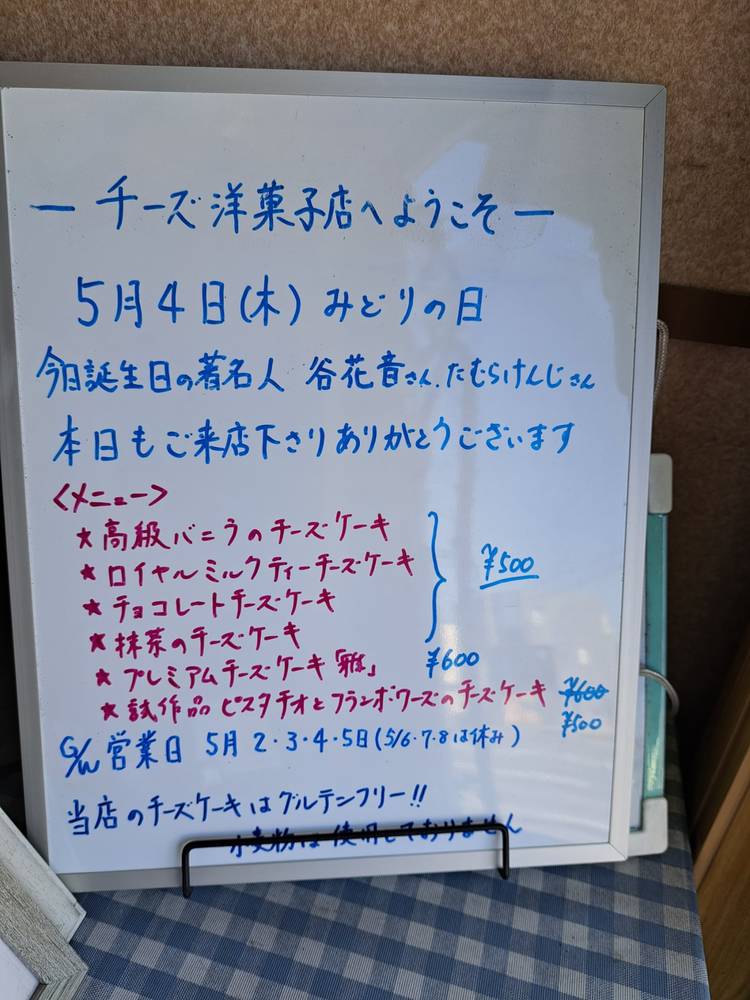 ー チーズ洋菓子店へようこそ ー
5月4日(木) みどりの日
今日誕生日の著名人 谷花音さん.たむらけんじさん
本日もご来店下さりありがとうございます
<メニュー>
★高級バニラのチーズケーキ
★ロイヤルミルクティーチーズケーキ
★チョコレートチーズケーキ
★抹茶のチーズケーキ
¥500
★プレミアムチーズケーキ「雅」 ¥600
★試作品ピスタチオとフランボワーズのチーズケーキ ¥600
¥500
G/W営業日 5月2・3・4・5日(5/6・7・8は休み)
当店のチーズケーキはグルテンフリー!!
小麦粉は使用しておりません